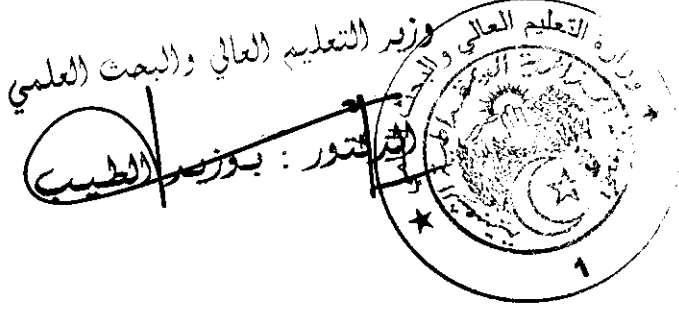 وزير التعليم العالي والبحث العلمي
الدكتور : بوزيد الطيب
وزارة التعليم العالي والبحث
1